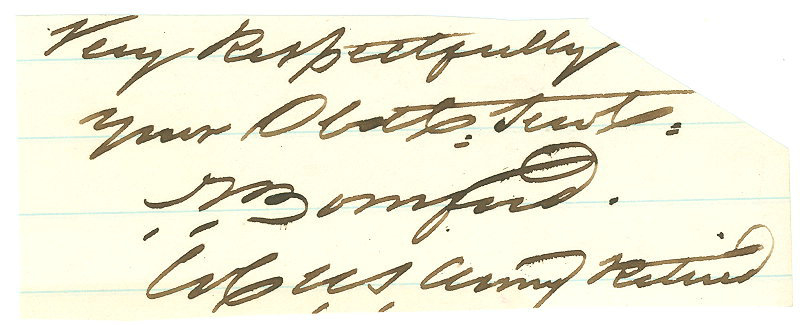 Very Respectfully
your Obdt. Servt.
JV Bomford.
Col US Army Retired